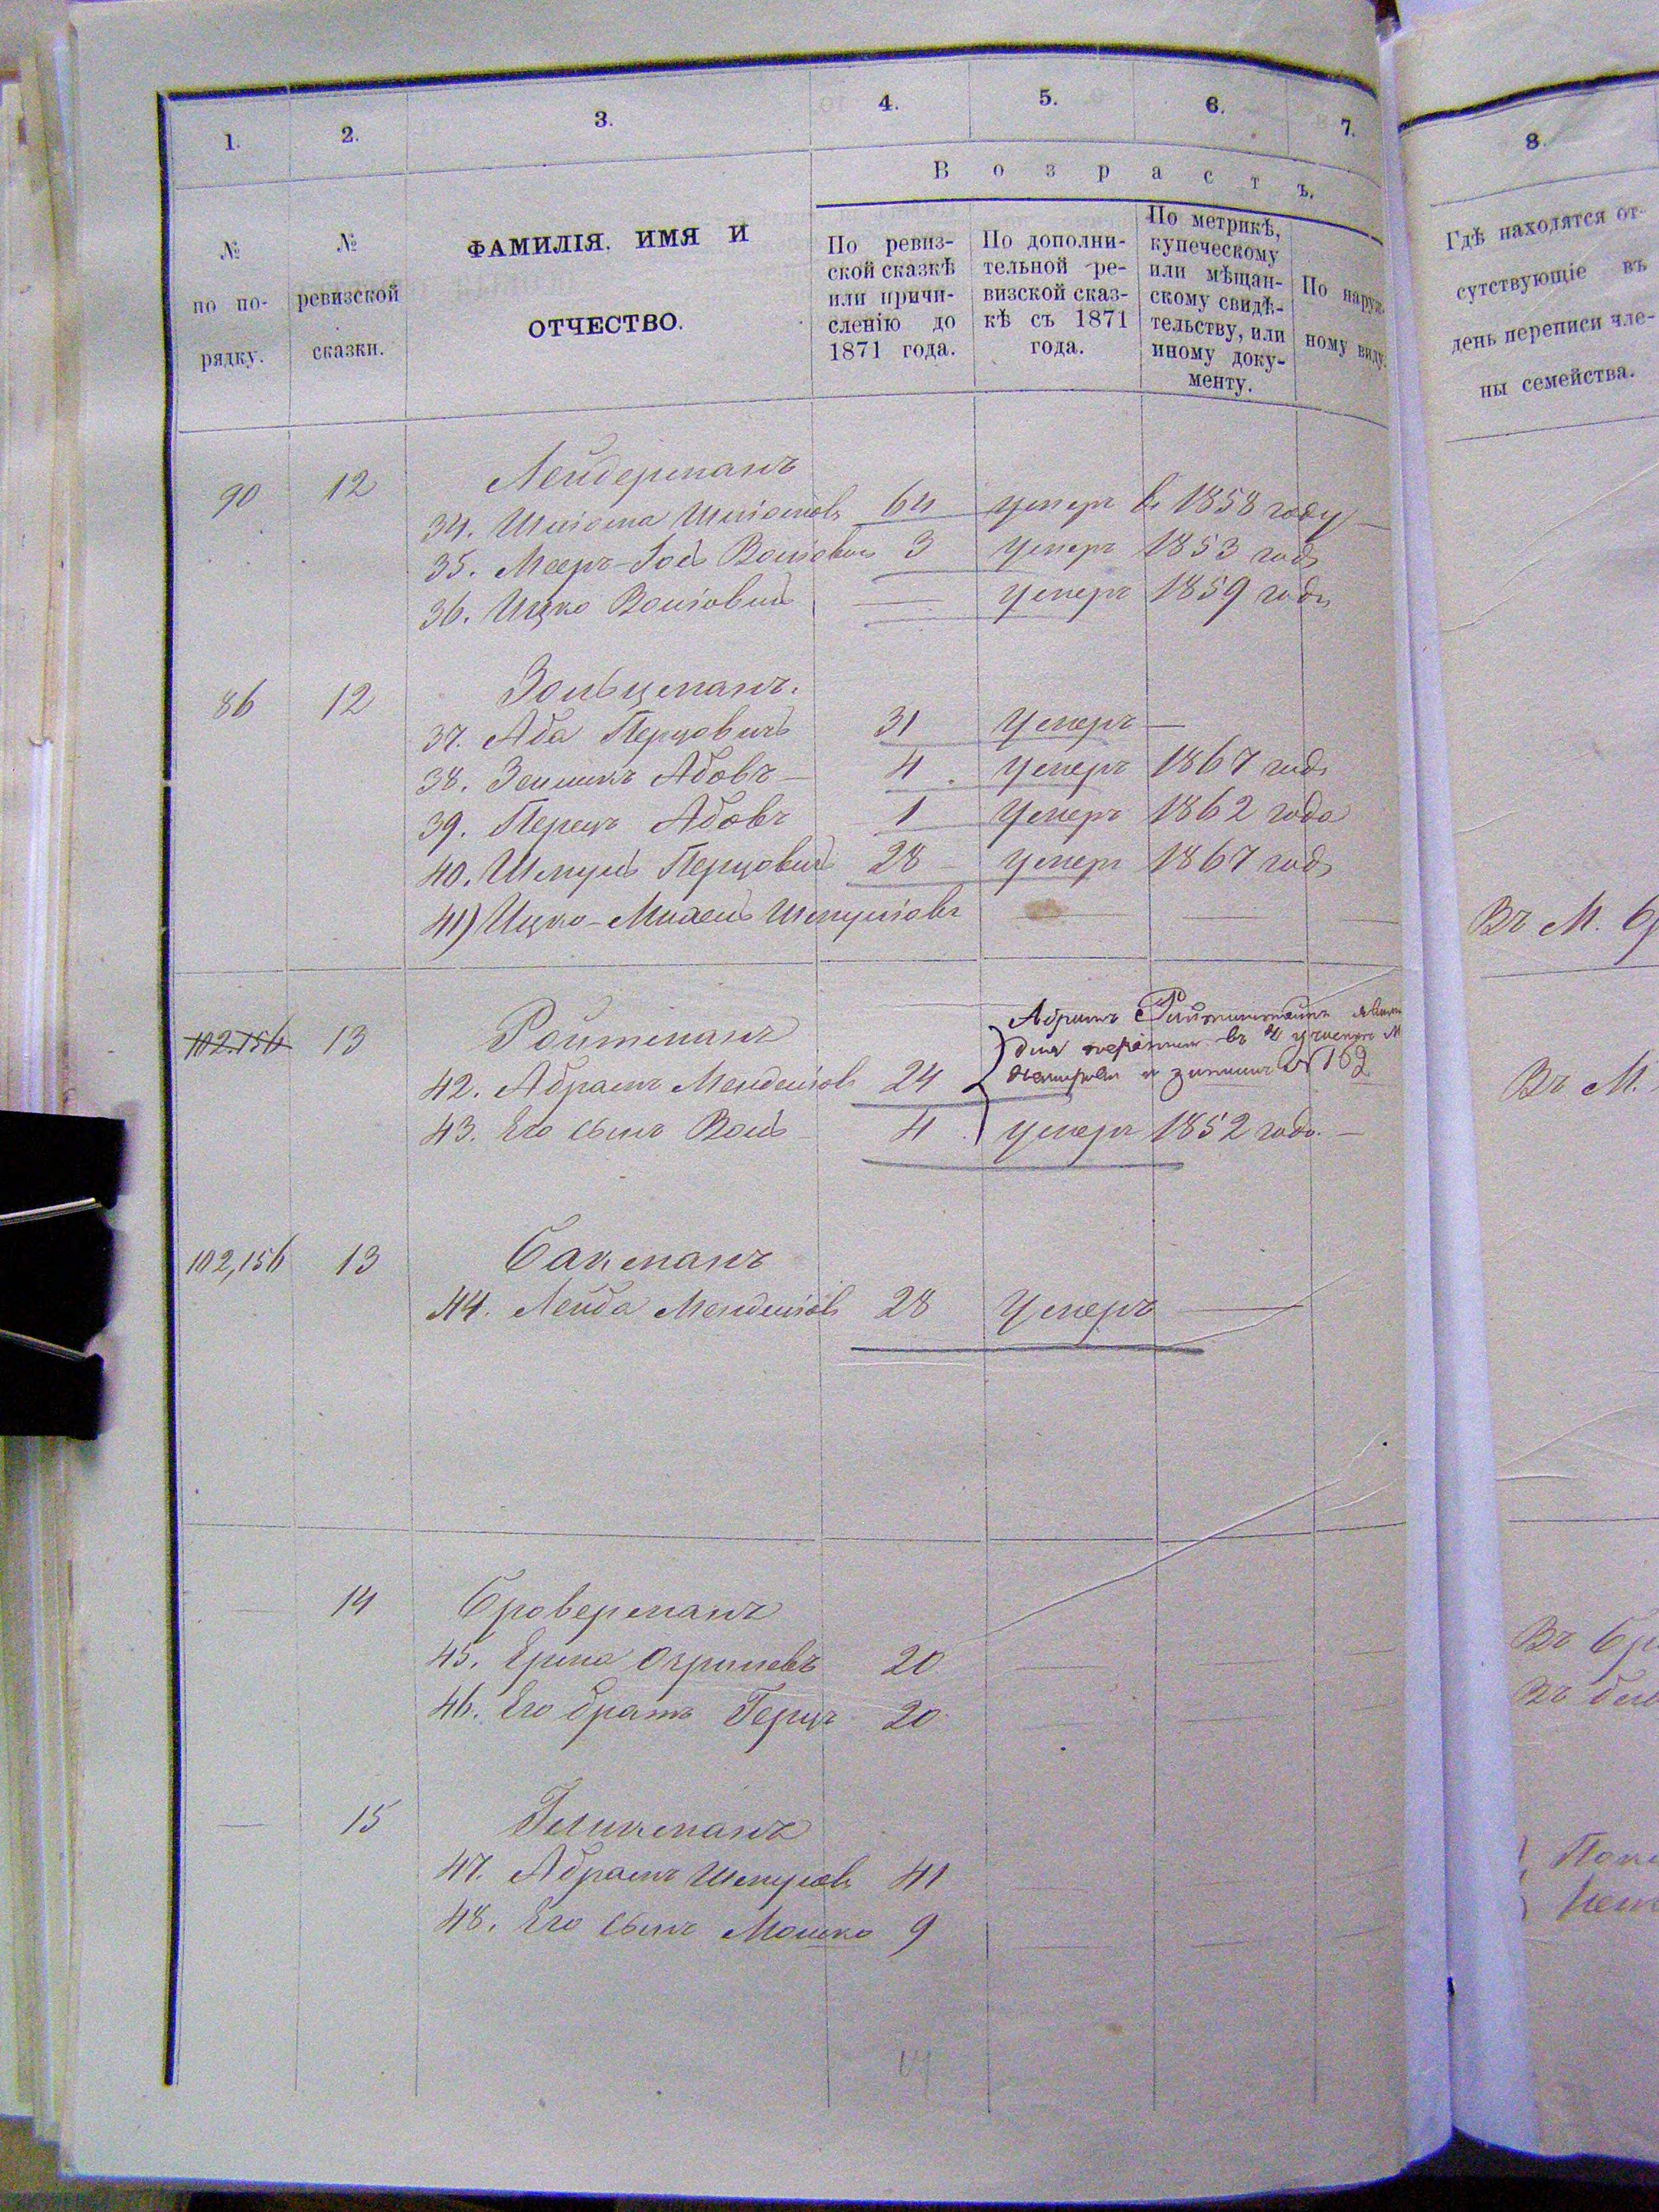 1. 2. 3. 4. 5. 6. 7.
Возрастъ.
№ по по-
рядку.
№
ревизской
сказки.
ФАМИЛІЯ. ИМЯ И
ОТЧЕСТВО.
По ревиз-
ской сказкѣ
или причи-
сленію до
1871 года.
По дополни-
тельной ре-
визской сказ-
кѣ съ 1871
года.
По метрикѣ,
купеческому
или мѣщан-
скому свидѣ-
тельству, или
иному доку-
менту.
По наруж-
ному виду.
90 12 Лейдерманъ
34. Шліома Шліомов 64 умеръ в 1858 году
35. Мееръ-Іось Волков 3 умеръ 1853 года
36. Ицко 	умеръ 1859 года
86 12 Зольцманъ.
37. Аба Перцовичъ 31 Умеръ —
38. Зельманъ Абовъ — 4 умеръ 1867 года
39. Перецъ Абовъ 1 Умеръ 1862 года
40. Шмуль Перцовичъ 28 умеръ 1867 года
41) Ицко-Михель Шмуліовъ
102.156 13 Ройтманъ
42. Абрамъ Менделіов 24
Абрамъ
въ 4 участкѣ
№ 169
43. Его сынъ Воль 4 умеръ 1852 года. —
102,156 13 Бакманъ
44. Лейба Менделіов 28 Умеръ
14 Броверманъ
45. Ерма 20
46. Его братъ Герцъ 20
— 15 Геликманъ
47. Абрамъ Шмулов 41
48. Его сынъ Мошко 9
8.
Гдѣ находятся от-
сутствующіе въ
день переписи чле-
ны семейства.
Въ М.
Въ М.
Въ
Въ